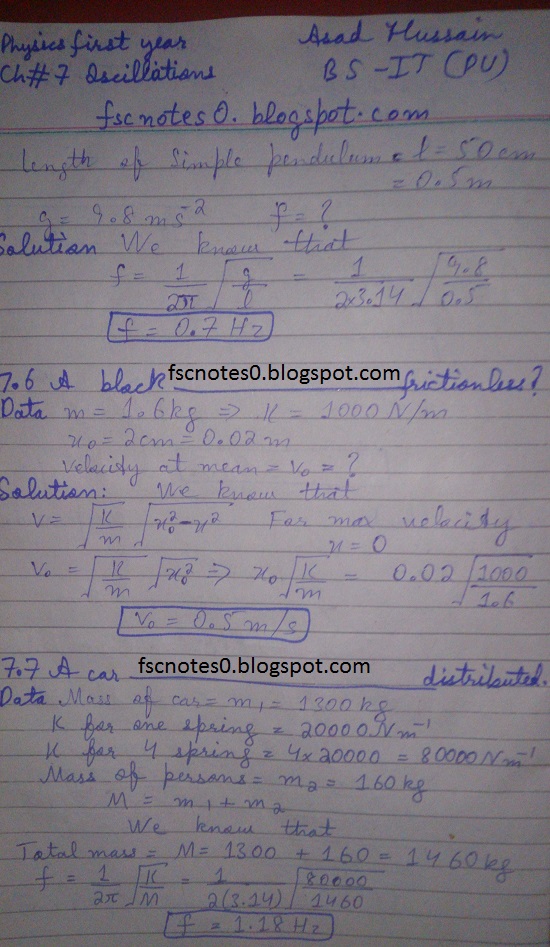 Physics first year Asad Hussain
Ch#7 Oscillations BS-IT (PU)
fscnotes0.blogspot.com
Length of Simple pendulum = l = 50cm
= 0.5m
g = 9.8 ms⁻² f = ?
Solution We know that
f = 1/2π √(g/l) = 1/(2×3.14) √(9.8/0.5)
f = 0.7 Hz
7.6 A block fscnotes0.blogspot.com frictionless?
Data m = 1.6kg ⇒ K = 1000 N/m
x₀ = 2cm = 0.02m
Velocity at mean = v₀ = ?
Solution: We know that
V = √(K/m) √(x₀²-x²) For max velocity
x = 0
V₀ = √(K/m) √(x₀²) ⇒ x₀ √(K/m) = 0.02 √(1000/1.6)
V₀ = 0.5 m/s
7.7 A car fscnotes0.blogspot.com distributed.
Data Mass of car = m₁ = 1300 kg
K for one spring = 20000 Nm⁻¹
K for 4 spring = 4×20000 = 80000 Nm⁻¹
Mass of persons = m₂ = 160 kg
M = m₁ + m₂
We know that
Total mass = M = 1300 + 160 = 1460 kg
f = 1/2π √(K/M) = 1/2(3.14) √(80000/1460)
f = 1.18 Hz